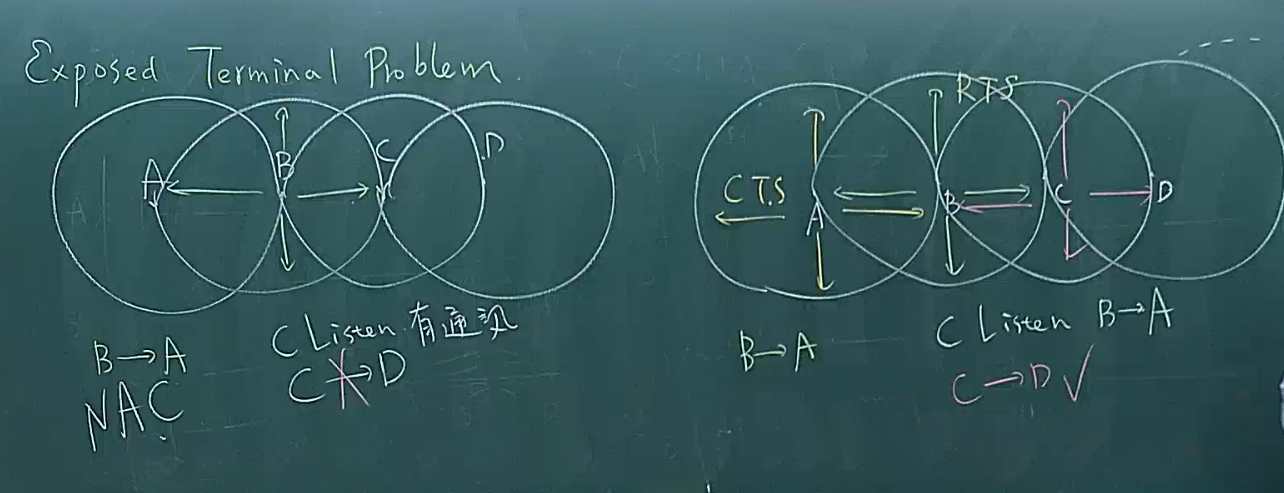 Exposed Terminal Problem.
A
B
C
D
B→A
NAC
C Listen 有通訊
C→D
RTS
CTS
A
B
C
D
B→A
C Listen B→A
C→D✓